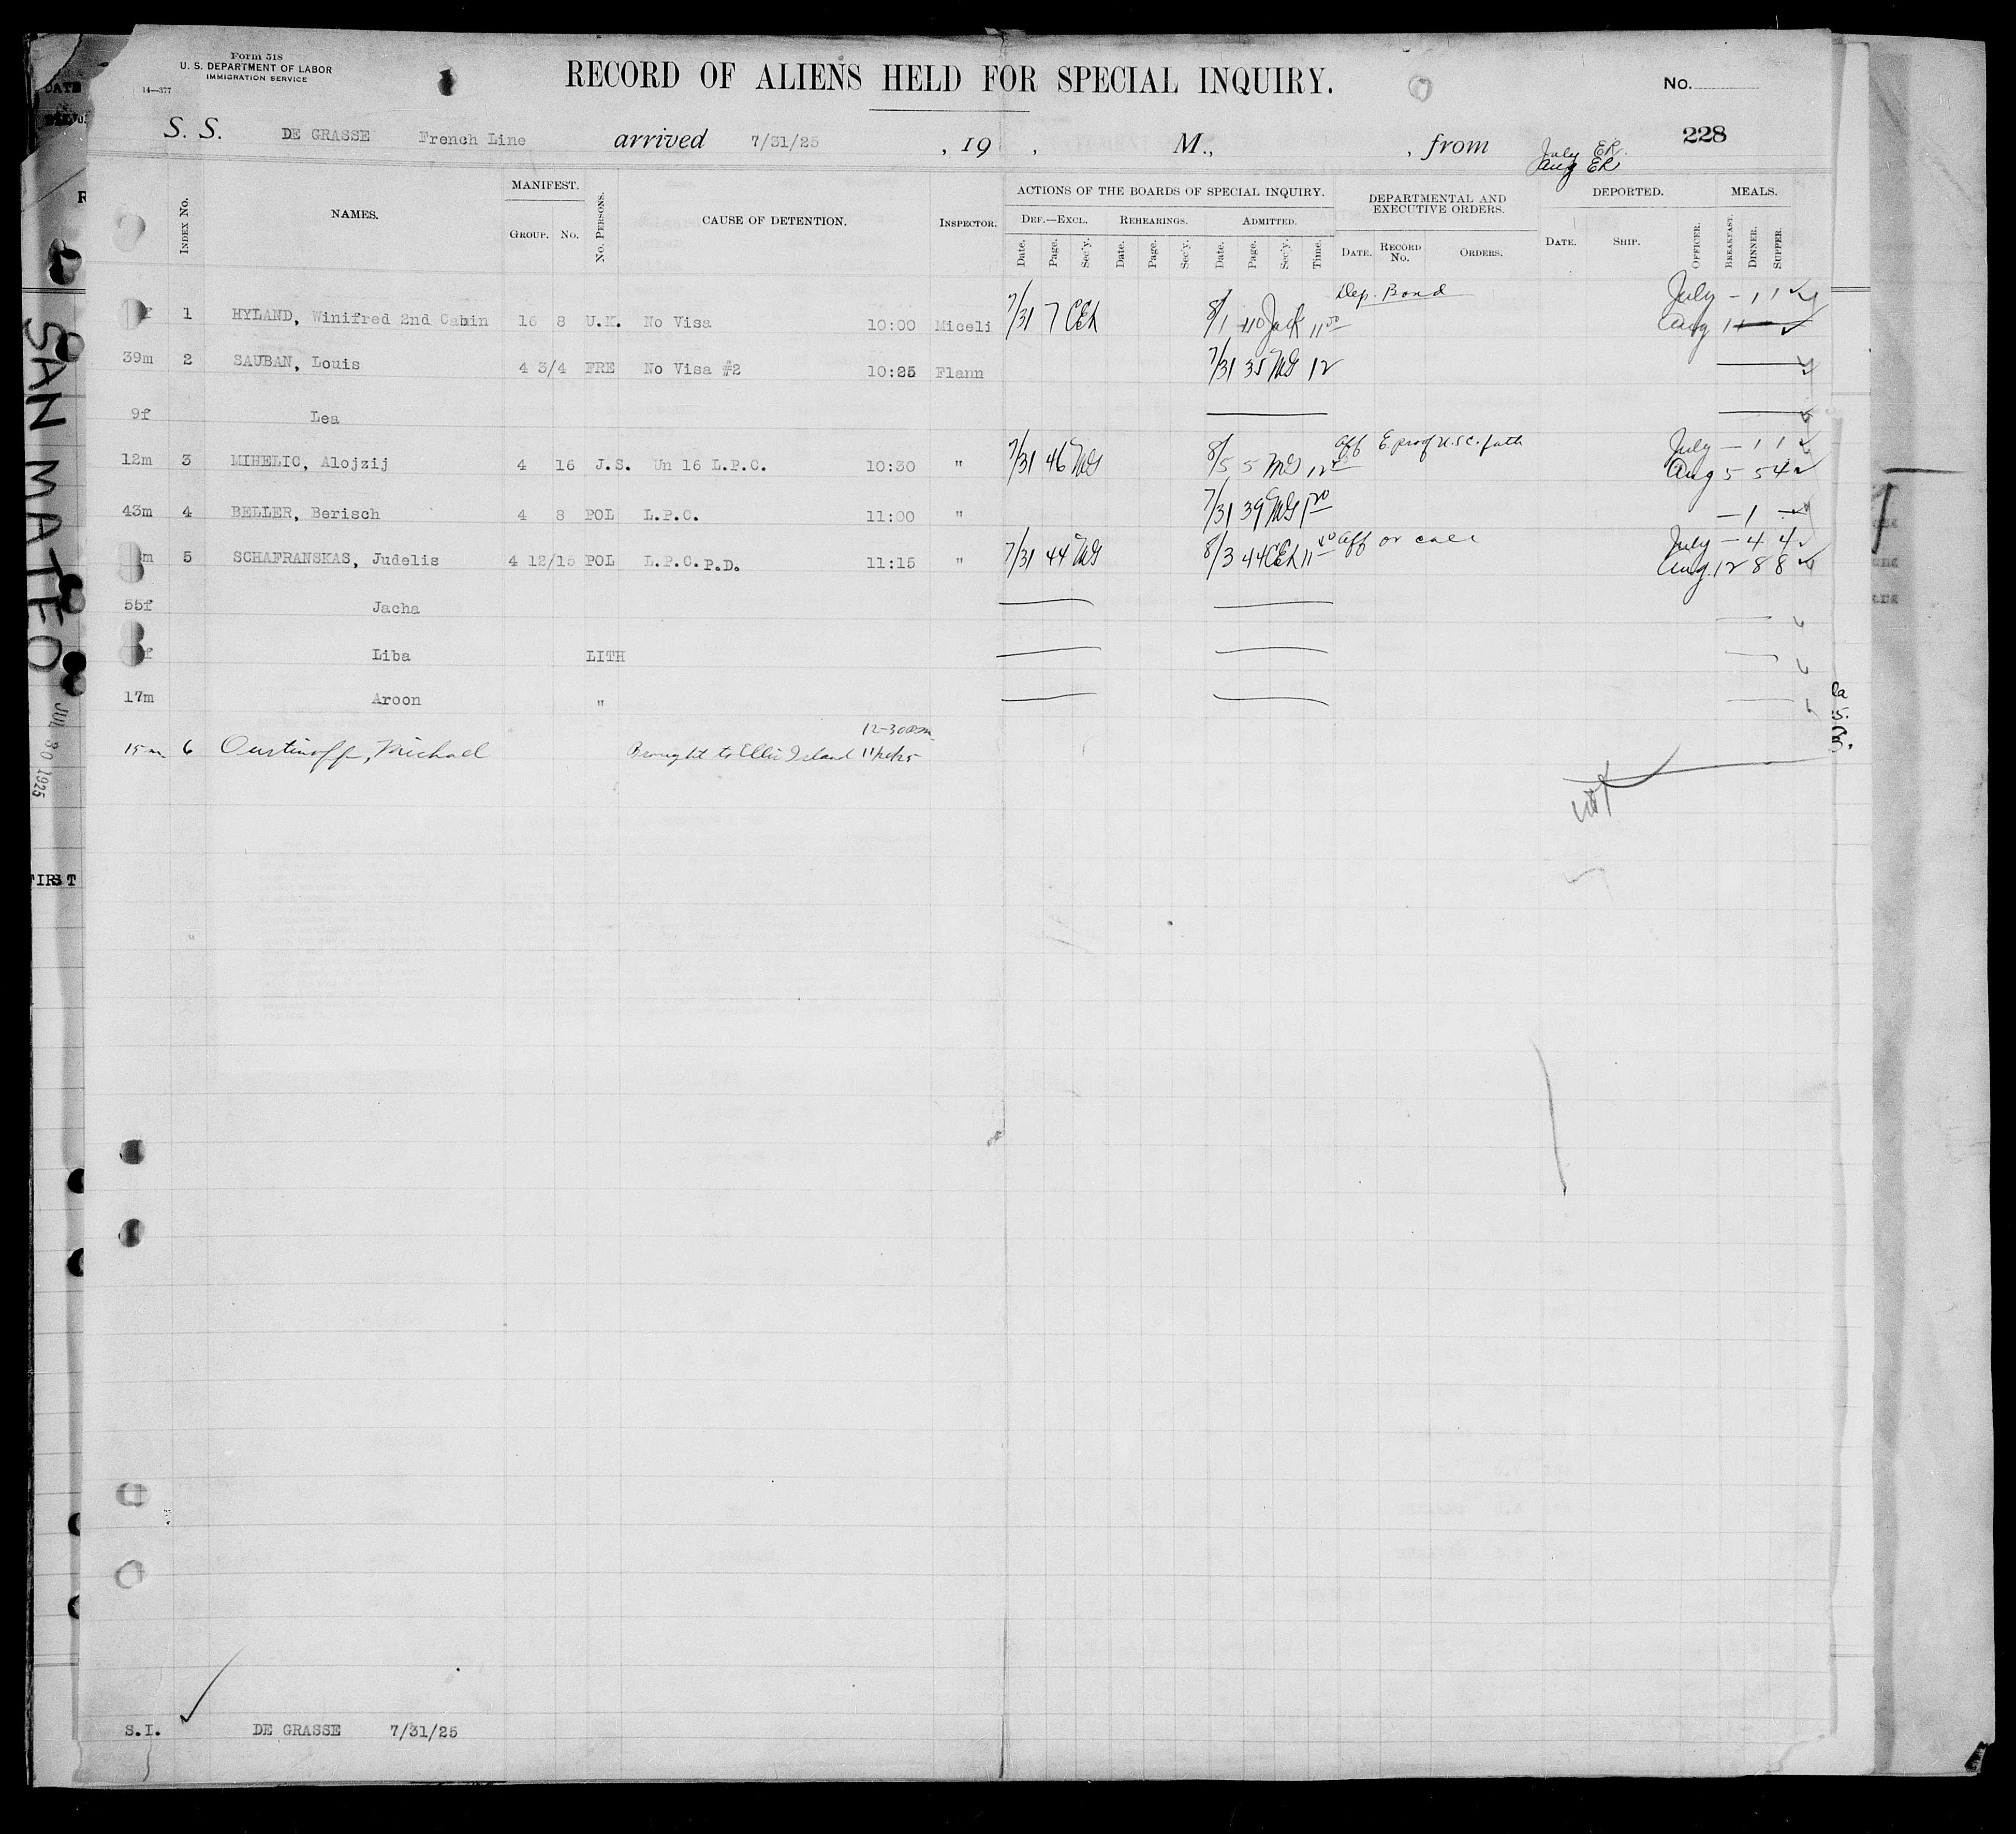 Form 518
U. S. DEPARTMENT OF LABOR
IMMIGRATION SERVICE
14—377
RECORD OF ALIENS HELD FOR SPECIAL INQUIRY.
No.
S. S. DE GRASSE French Line arrived 7/31/25 , 19 , M., , from
228
July ER.
Aug ER
INDEX NO. NAMES. MANIFEST. GROUP. NO. NO. PERSONS. CAUSE OF DETENTION. INSPECTOR. ACTIONS OF THE BOARDS OF SPECIAL INQUIRY. DEF.—EXCL. REHEARINGS. ADMITTED. DEPARTMENTAL AND EXECUTIVE ORDERS. DEPORTED. MEALS.
Date. Page. Sec'y. Date. Page. Sec'y. Date. Page. Sec'y. Time. DATE. RECORD NO. ORDERS. DATE. SHIP. OFFICER. BREAKFAST. DINNER. SUPPER.
Dep. Bond July – 1 1
f 1 HYLAND, Winifred 2nd Cabin 16 8 U.K. No Visa 10:00 Miceli 7/31 7 CEh 8/1 110 Jack 11 50 Aug 1
39m 2 SAUBAN, Louis 4 3/4 FRE No Visa #2 10:25 Flann 7/31 35 MG 12
9f Lea
12m 3 MIHELIC, Alojzij 4 16 J.S. Un 16 L.P.C. 10:30 " 7/31 46 MG 8/5 5 MG 12 July – 1 1
Aug 5 5 4
43m 4 BELLER, Berisch 4 8 POL L.P.C. 11:00 " 7/31 39 MG 1 20 – 1 –
m 5 SCHAFRANSKAS, Judelis 4 12/15 POL L.P.C. P.D. 11:15 " 7/31 44 MG 8/3 44 CEh 11 40 aff or call July – 4 4
Aug. 12 8 8
55f Jacha
f Liba LITH
17m Aroon "
12-30 pm
15m 6 Oustinoff, Michael Brought to Ellis Island
S.I. DE GRASSE 7/31/25
SAN MATEO
JUL 30 1925
FIRST